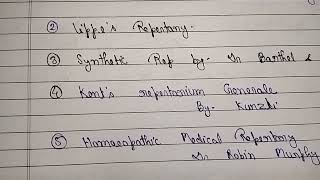 ② Lippe's Repertory.
③ Synthetic Rep by:- Dr Barthel &
④ Kent's repertorium Generale
By- Kunzli
⑤ Homoeopathic Medical Repertory
Dr. Robin Murphy